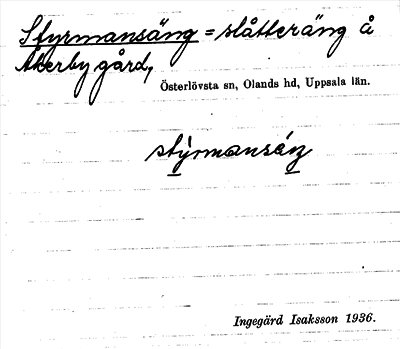 Styrmansäng = slåtteräng å
Åkerby gård,
Österlövsta sn, Olands hd, Uppsala län.
stý̀rmansáŋ
Ingegärd Isaksson 1936.